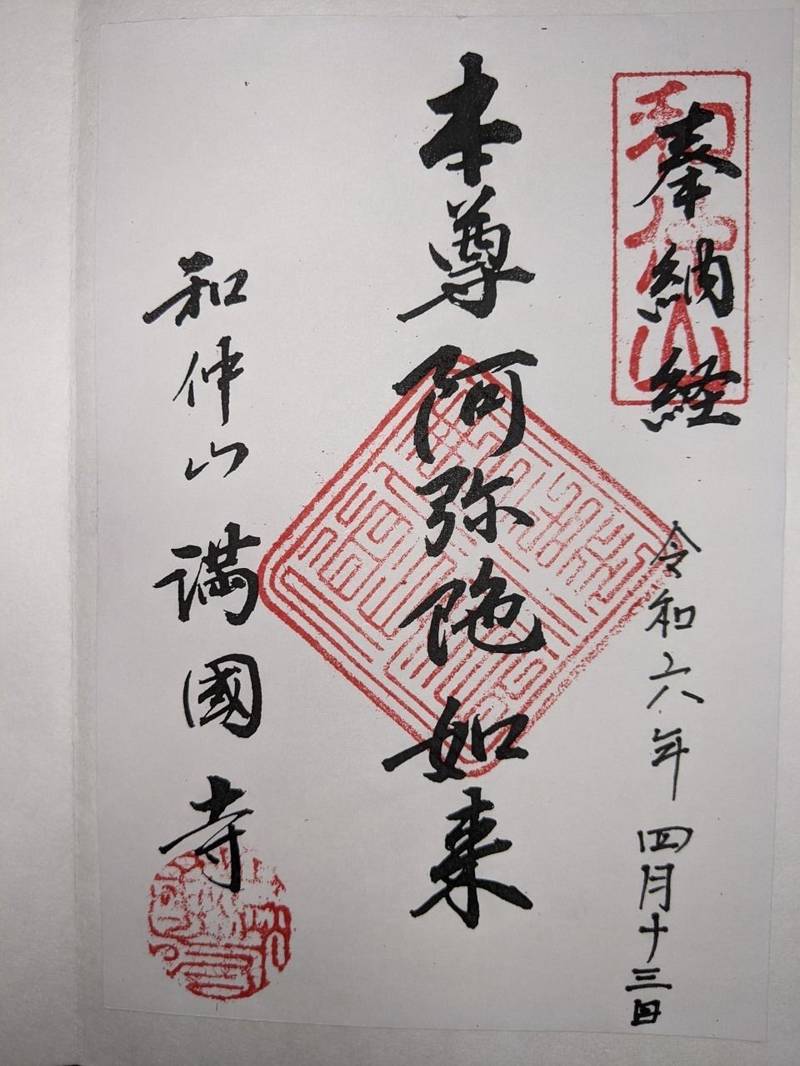 奉納経
和仲山
令和六年四月十三日
本尊阿弥陀如来
和仲山満國寺